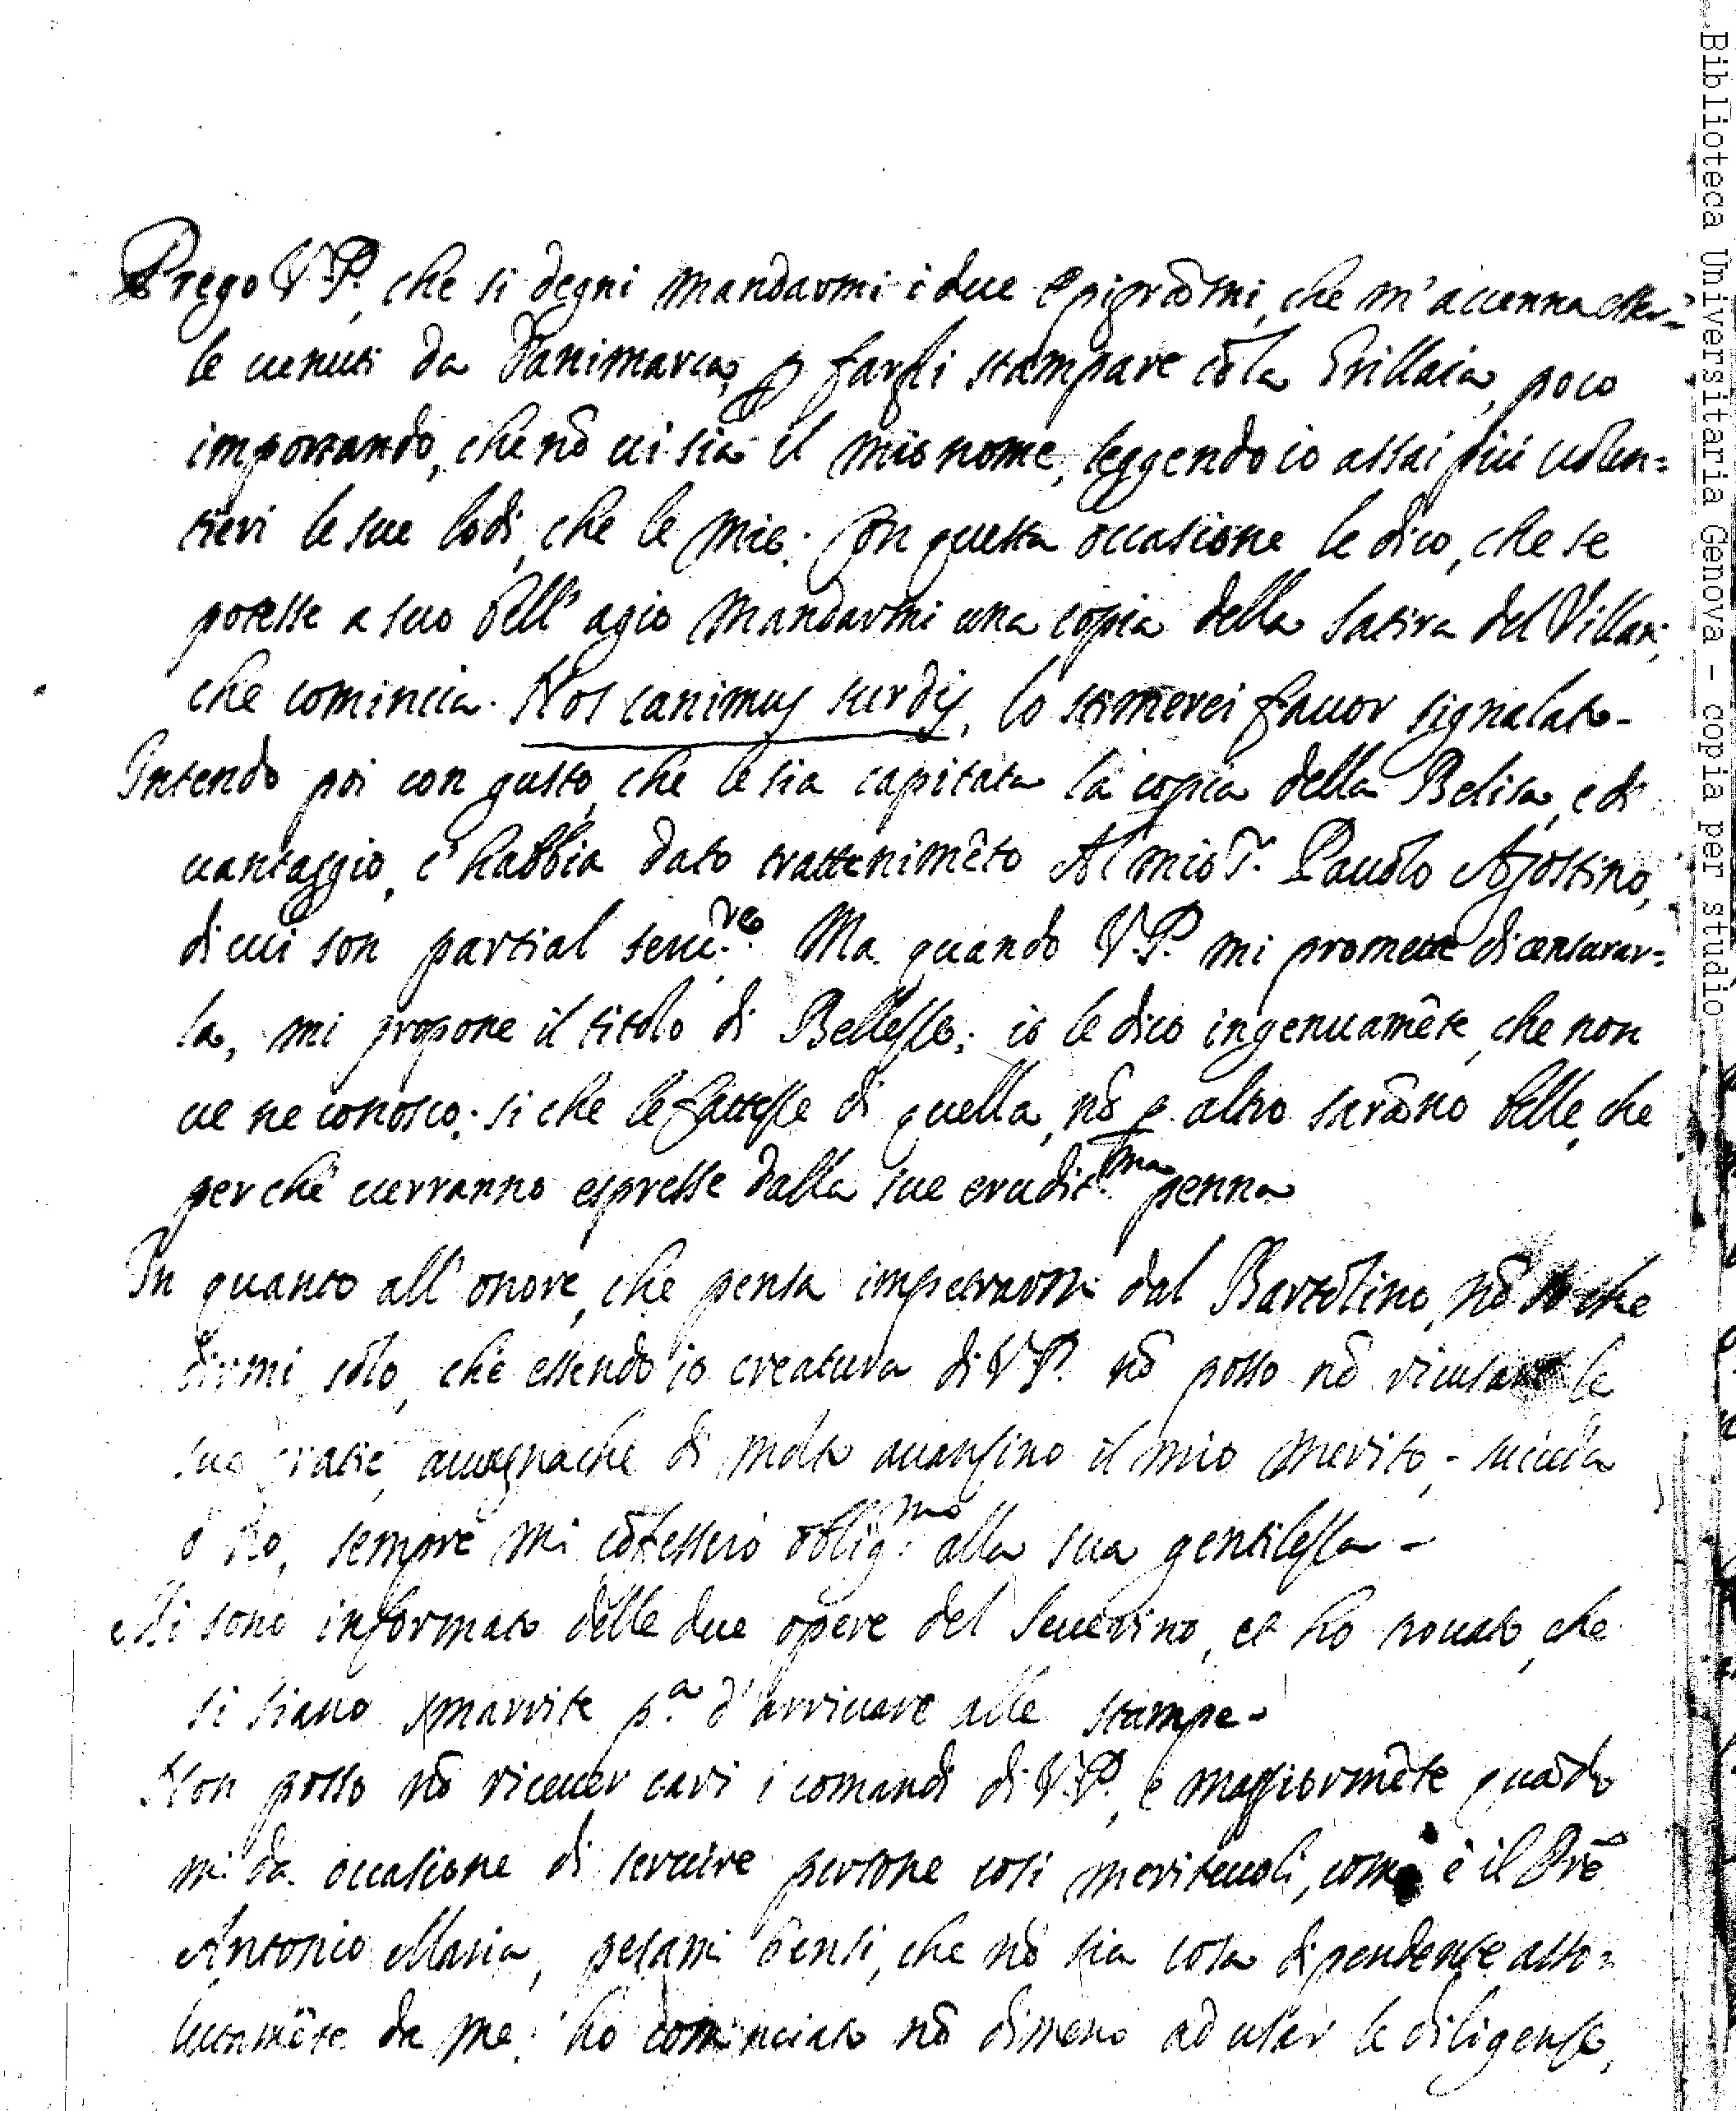 Prego V.P., che si degni mandarmi i due Epigrãmi, che m'accenna esser=
le venuti da Danimarca, p farli stampare cõ la Grillaia, poco
importando, che nõ vi sia il mio nome, leggendo io assai più volen=
tieri le sue lodi, che le mie. Con questa occasione le dico, che se
potesse a suo bell'agio mandarmi una copia della Satira del Villani,
che comincia. Nos canimus surdis, lo stimerei favor signalato-
Intendo poi con gusto, che le sia capitata la copia della Belisa, e di
vantaggio, c'habbia dato trattenimẽto Al mio P. Pauolo Agostino,
di cui son partial serv.re. Ma quando V.P. mi promette di censurar=
la, mi propone il titolo di Bellezze; io le dico ingenuamẽte, che non
ve ne conosco; si che le fattezze di quella, nõ p altro sarãno belle, che
perche verranno espresse dalla sue erudit.ma penna
In quanto all'onore, che pensa impetrarmi dal Bartolino, nõ so che
dirmi, solo, che essendo io creatura di V.P. nõ posso nõ ricusare le
sue gratie, avvegnache di molto avanzino il mio merito,- succeda
ò no, sempre mi cõfesserò oblig.mo alla sua gentilezza-
Mi sono informato delle due opere del Severino, et ho trovato, che
si siano smarrite p.a d'arrivare alle stampe-
Non posso nõ ricever cari i comandi di V.P., e maggiormẽte quãdo
mi da occasione di servire persone così meritevoli, come è il Prẽ
Antonio Maria, pesami bensi, che nõ sia cosa dipendente asso=
lutamẽte da me: ho cominciato nõ dimeno ad usar le diligenze,
Biblioteca Universitaria Genova - copia per studio